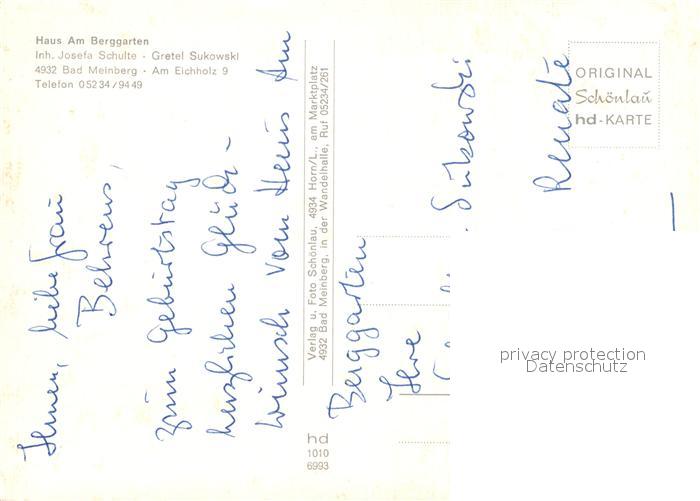 Haus Am Berggarten
Inh. Josefa Schulte - Gretel Sukowski
4932 Bad Meinberg - Am Eichholz 9
Telefon 05234/9449
Ihnen, liebe Frau
Behrens,
zum Geburtstag
herzlichen Glück-
wunsch vom Haus Am
Berggarten
Ihre
Sukowski
Renate
Verlag u. Foto Schönlau, 4934 Horn/L., am Marktplatz
4932 Bad Meinberg, in der Wandelhalle, Ruf 05234/261
hd
1010
6993
ORIGINAL
Schönlau
hd-KARTE
privacy protection
Datenschutz